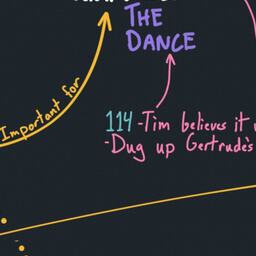 THE
DANCE
Important for
114 - Tim believes it
- Dug up Gertrude's